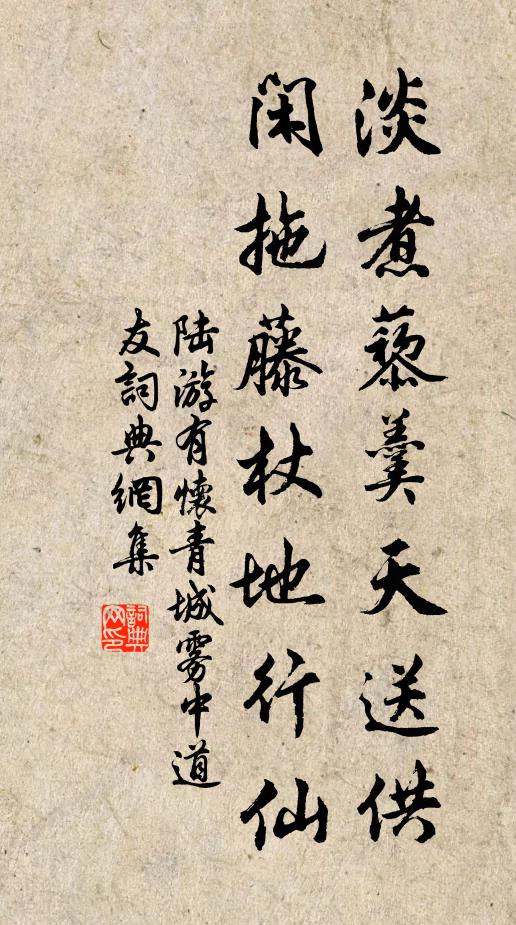 淡煮藜羹天送供
閑拖藤杖地行仙
陆游有懷青城霧中道
友詞典網集
詞典
网印